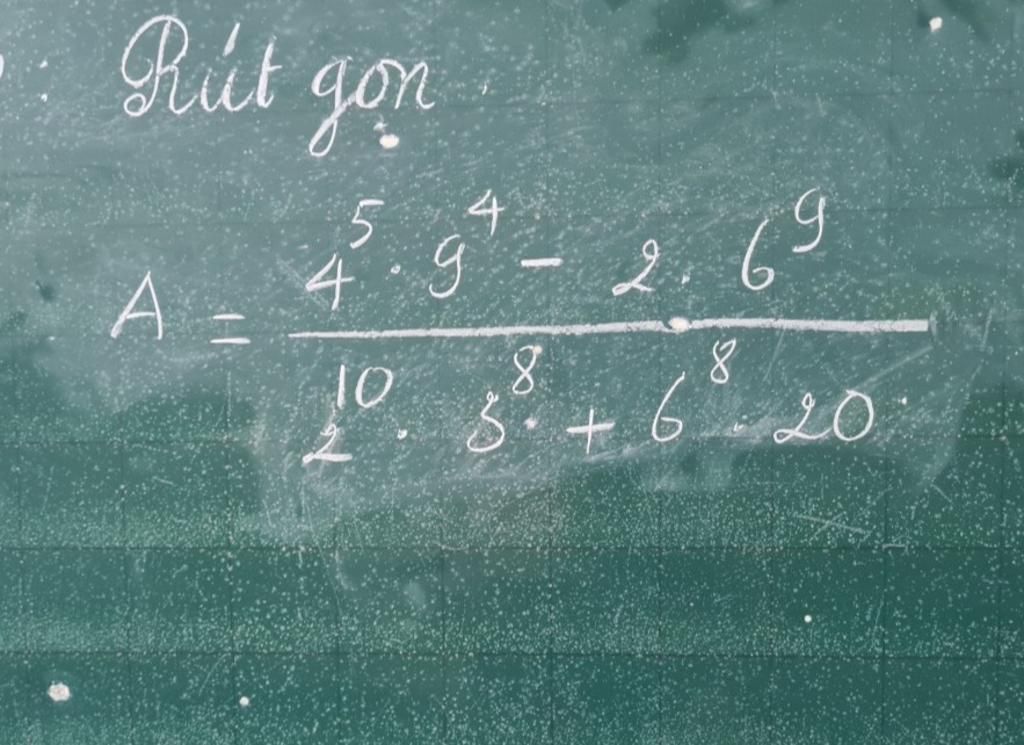 : Rút gọn.
A = \frac{4^5 . 9^4 - 2 . 6^9}{2^{10} . 3^8 + 6^8 . 20}